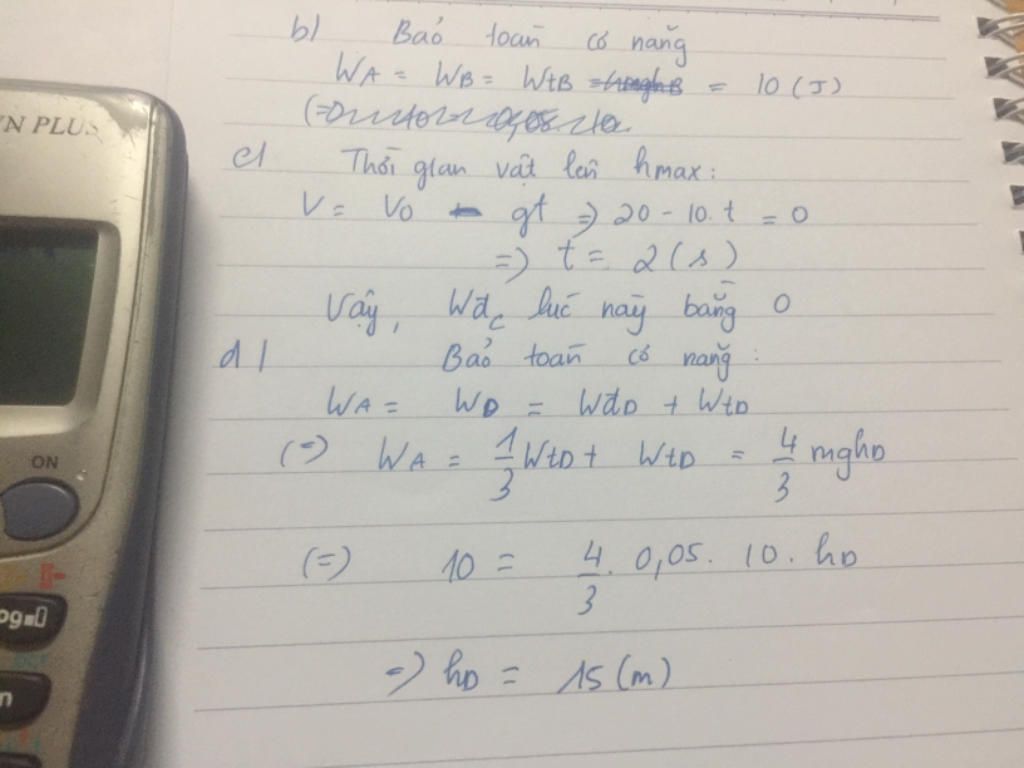 VN PLUS
ON
b) Bảo toàn cơ năng
WA = WB = WtB = 10 (J)
c) Thời gian vật lên hmax:
V = V0 - gt => 20 - 10.t = 0
=> t = 2 (s)
Vậy, WđC lúc này bằng 0
d) Bảo toàn cơ năng:
WA = WD = WđD + WtD
(=) WA = 1/3 WtD + WtD = 4/3 mghD
(=) 10 = 4/3 . 0,05 . 10 . hD
=> hD = 15 (m)